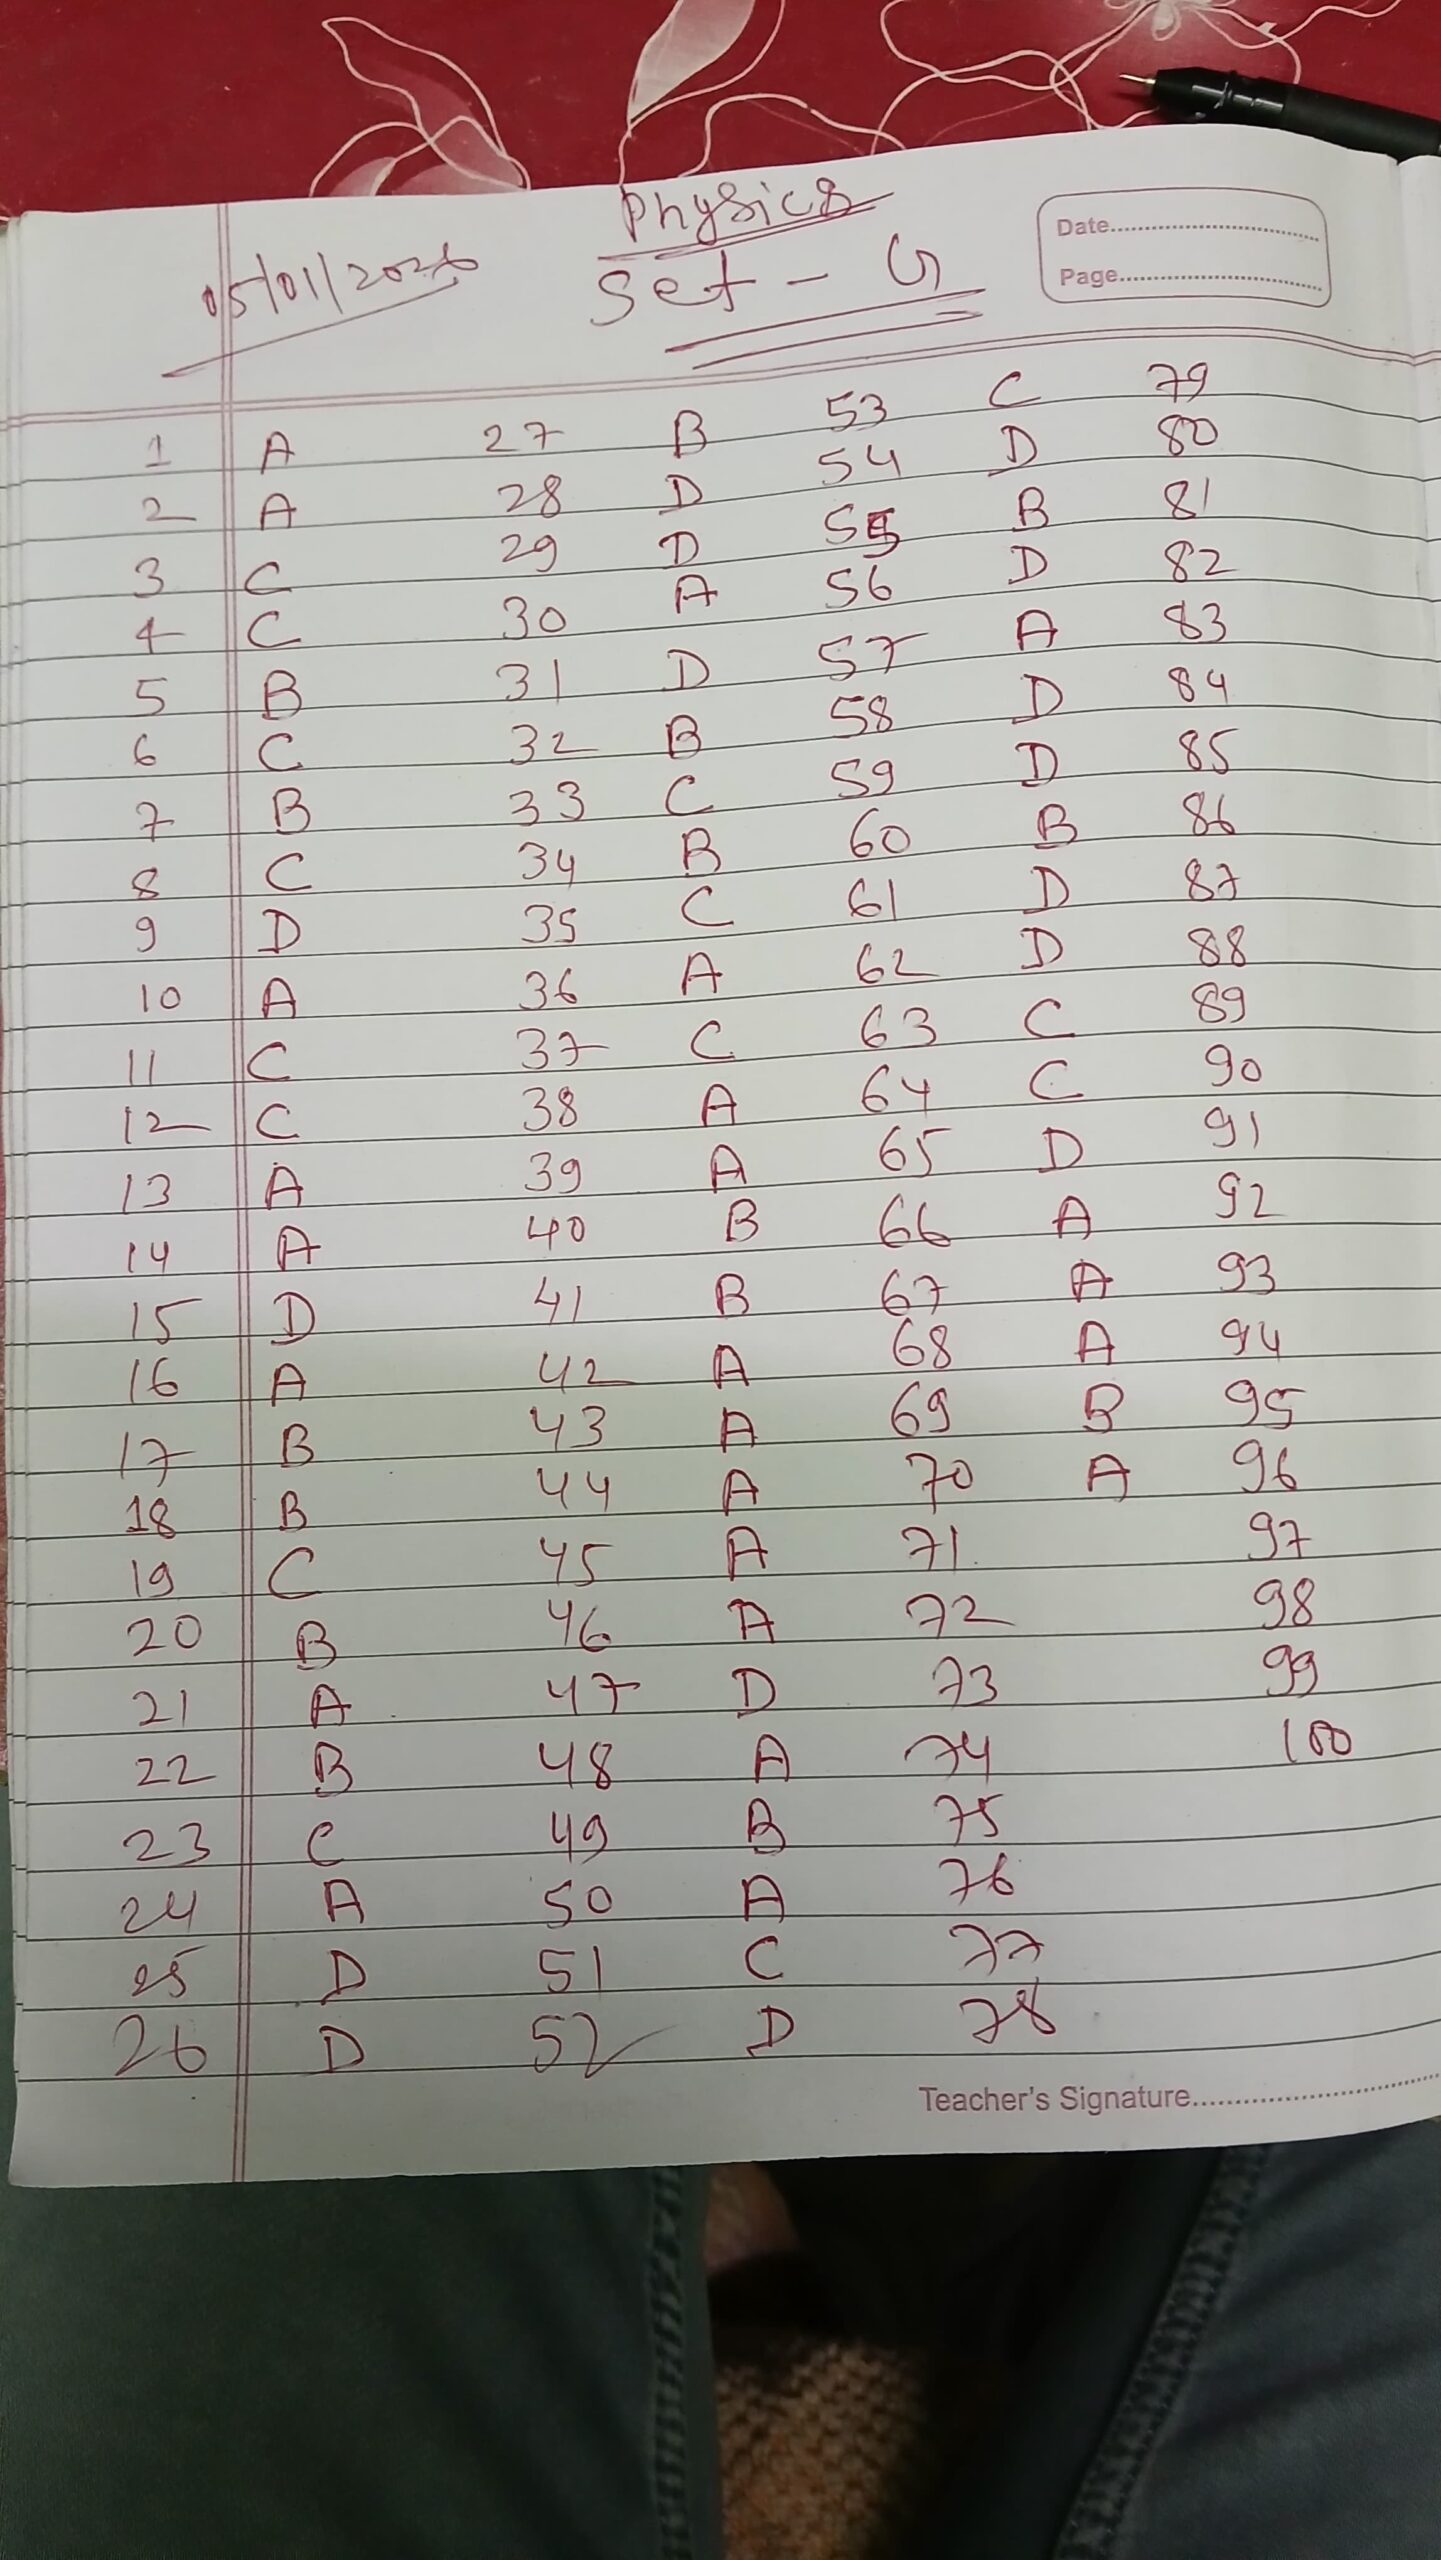 Physics
05/01/2026
Set - G
Date
Page
1 A 27 B 53 C 79
2 A 28 D 54 D 80
3 C 29 D 55 B 81
4 C 30 A 56 D 82
5 B 31 D 57 A 83
6 C 32 B 58 D 84
7 B 33 C 59 D 85
8 C 34 B 60 B 86
9 D 35 C 61 D 87
10 A 36 A 62 D 88
11 C 37 C 63 C 89
12 C 38 A 64 C 90
13 A 39 A 65 D 91
14 A 40 B 66 A 92
15 D 41 B 67 A 93
16 A 42 A 68 A 94
17 B 43 A 69 B 95
18 B 44 A 70 A 96
19 C 45 A 71 97
20 B 46 A 72 98
21 A 47 D 73 99
22 B 48 A 74 100
23 C 49 B 75
24 A 50 A 76
25 D 51 C 77
26 D 52 D 78
Teacher's Signature